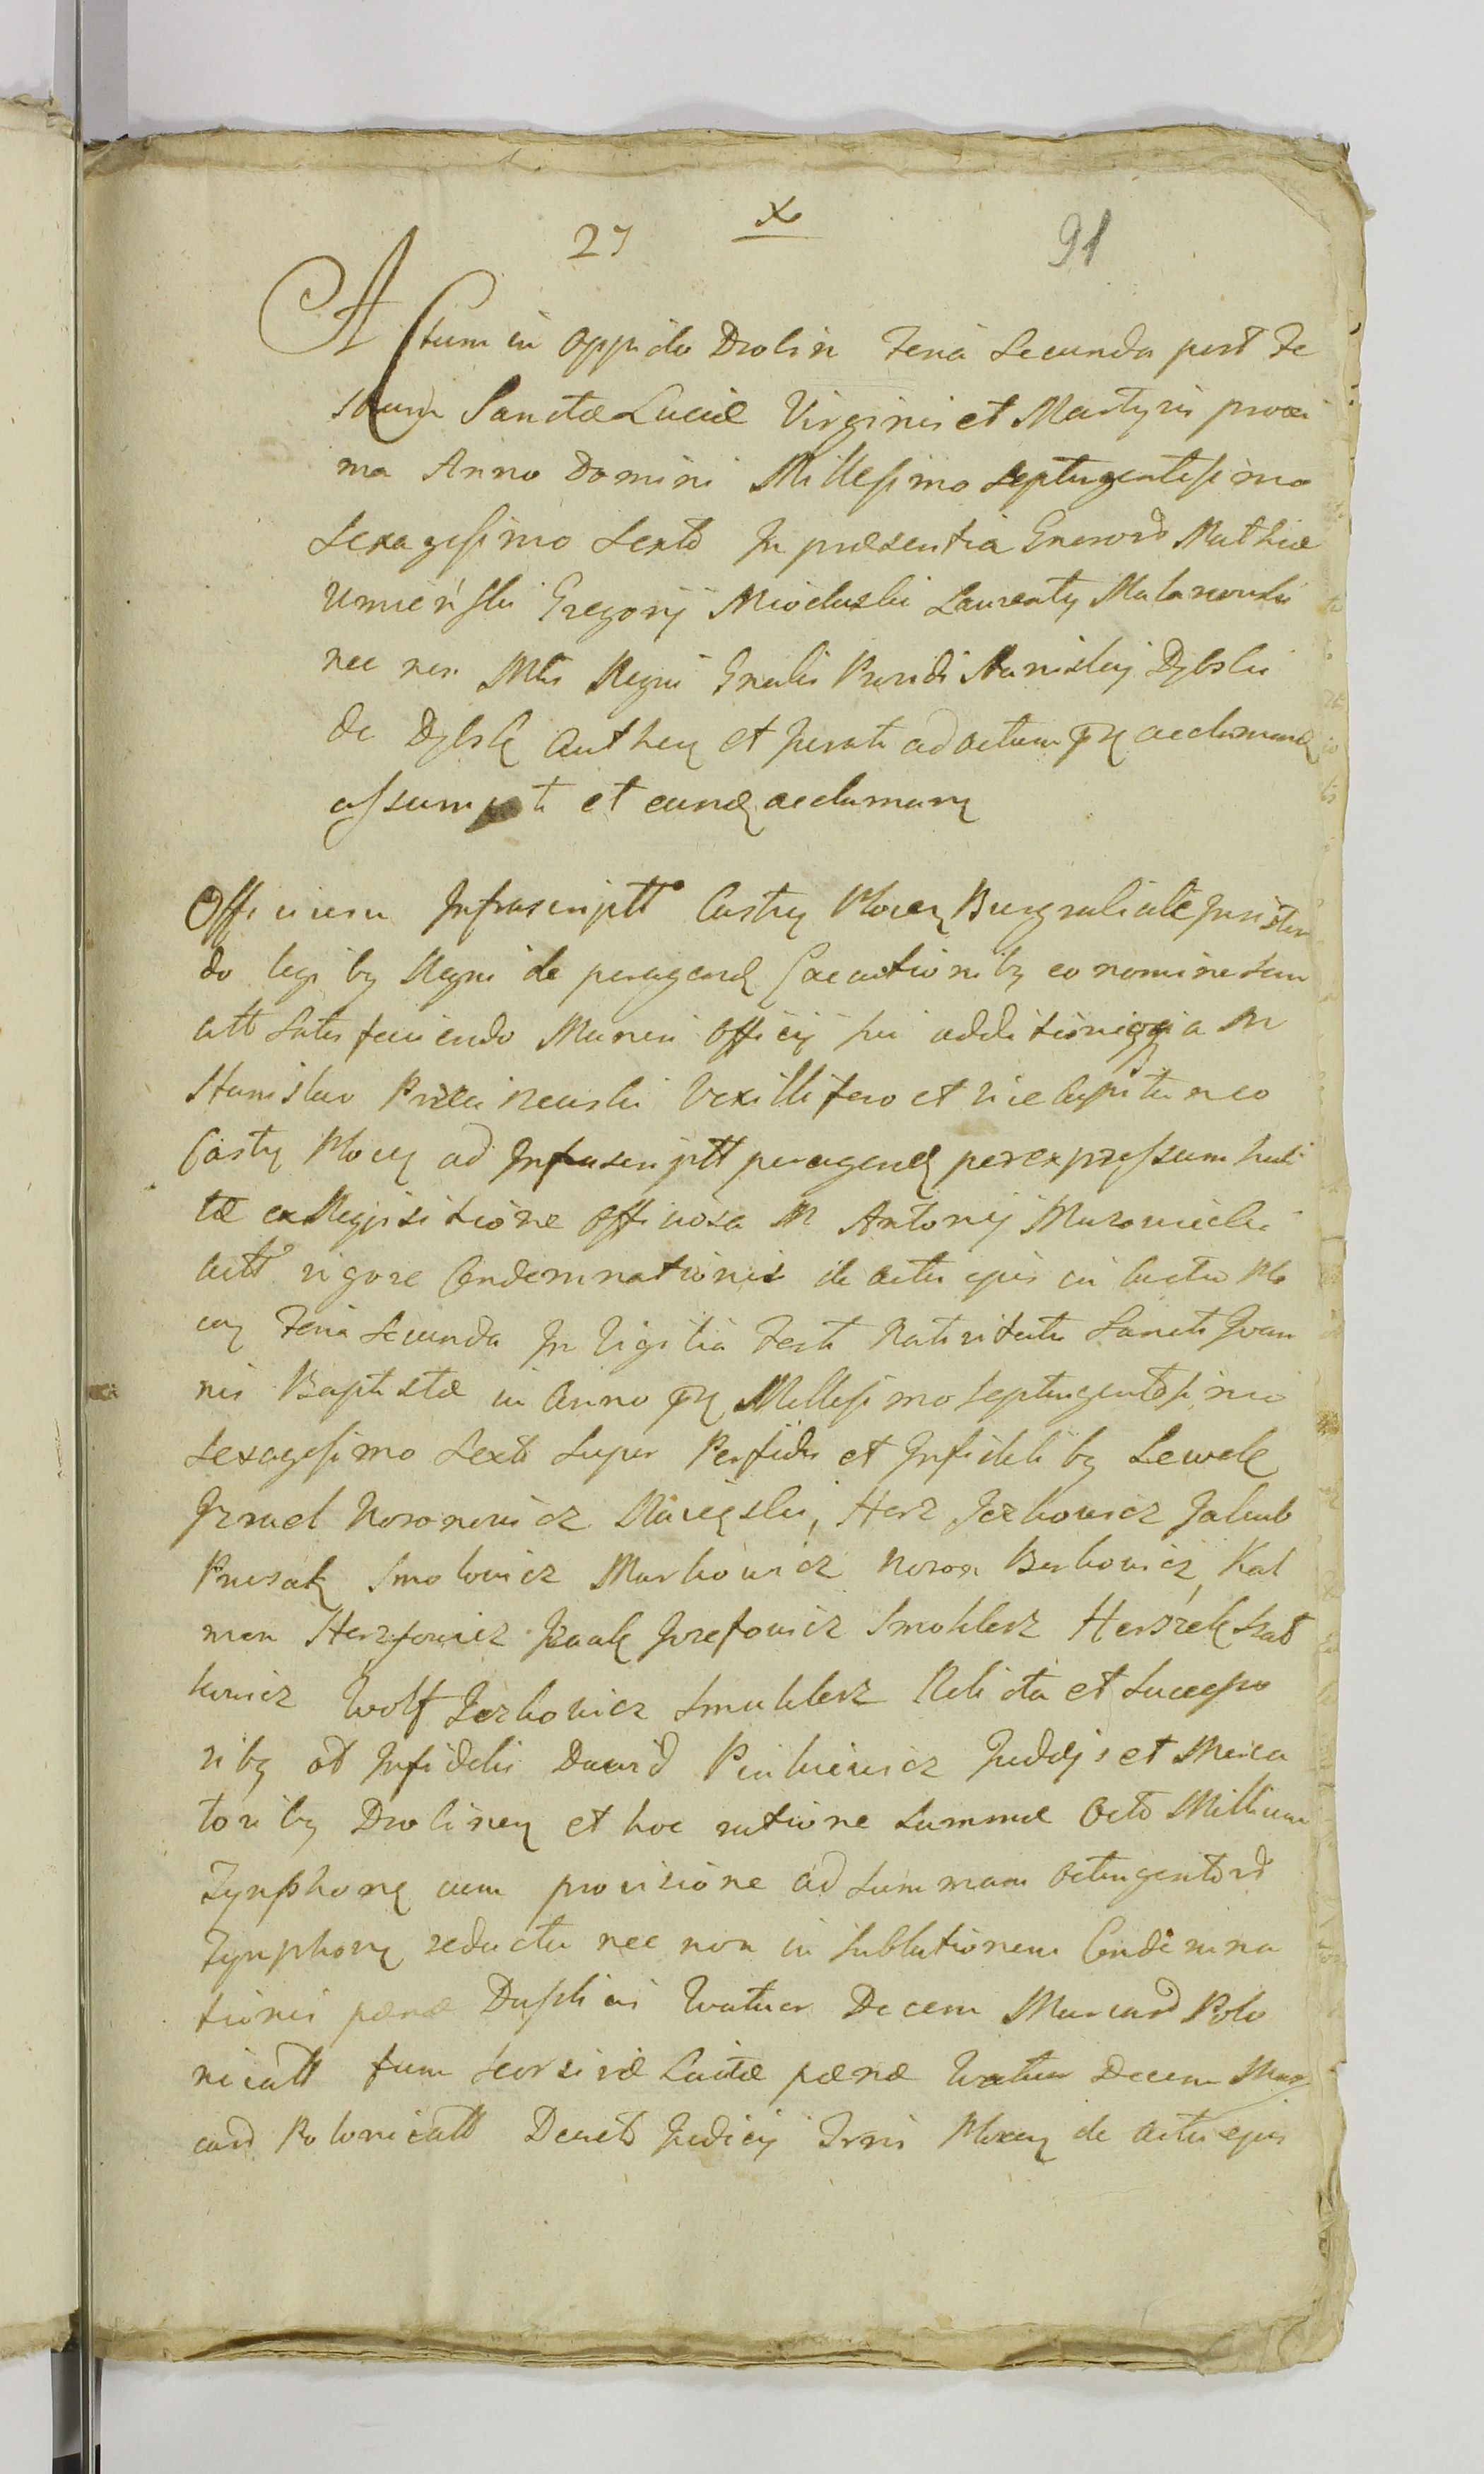 27 X 91
Actum in Oppido Drobin Feria Secunda post Fe
stum Sanctæ Luciæ Virginis et Martyris proxi
ma Anno Domini Millesimo Septingentesimo
Sexagesimo Sexto In præsentia Gnerosor Mathiæ
Umieński Gregorij Mioduski Laurenty Malanowski
nec non Mtis Regni Gnralis Providi Stanislaij Dybski
de Dybsk Authen et Jurati ad actum pn aeclamand
assumpti et eund aeclamant
Officium Infrascriptt Castren Plocen Burgrabiale Insisten
do legibq Regni de peragend Executionibq eo nomine san
citt Satisfaciendo Muneri Officij sui additioniqq a M
Stanislao Vexillifero et Vice Capitaneo
Castren Plocen ad Infrascriptt peragend per expressum
tæ ex Reqisitione Officiosa M Antonij Murowiecki
actt vigore Condemnationis de actu ejus in Castro Plo
cen Feria Secunda In Vigilia Festi Nativitatis Sancti Ioan
nis Baptistæ in Anno pn Millesimo Septingentesimo
Sexagesimo Sexto Super Perfidis et Infidelibq Lewek
Izrael Noronowicz Raciąski, Herz Jczkowicz Jakub
Prusak Smolowicz Markowicz Noron Berkowicz, Kal
man Herzfowicz Izaak Jozefowicz Smuklerz Herszek Szat
kowicz Wolf Jczkowicz Smuklerz Relicta et Successo
ribq ot Infidelis Dawid Pinkiewicz Judæjs et Merca
toribq Drobinen et hoc ratione Summæ Octo Millium
Tynphonq cum provisione ad Summam Octingentor
Tynphonq reducta nec non in Sublationem Condemna
tionis pœnæ Duplicis Quatuor Decem Marcar Polo
nicatt tum seorsivæ Luitæ pœnæ Quatuor Decem Mar
car Polonicatt Decreto Judicij Trris Plocen de Actu ejus